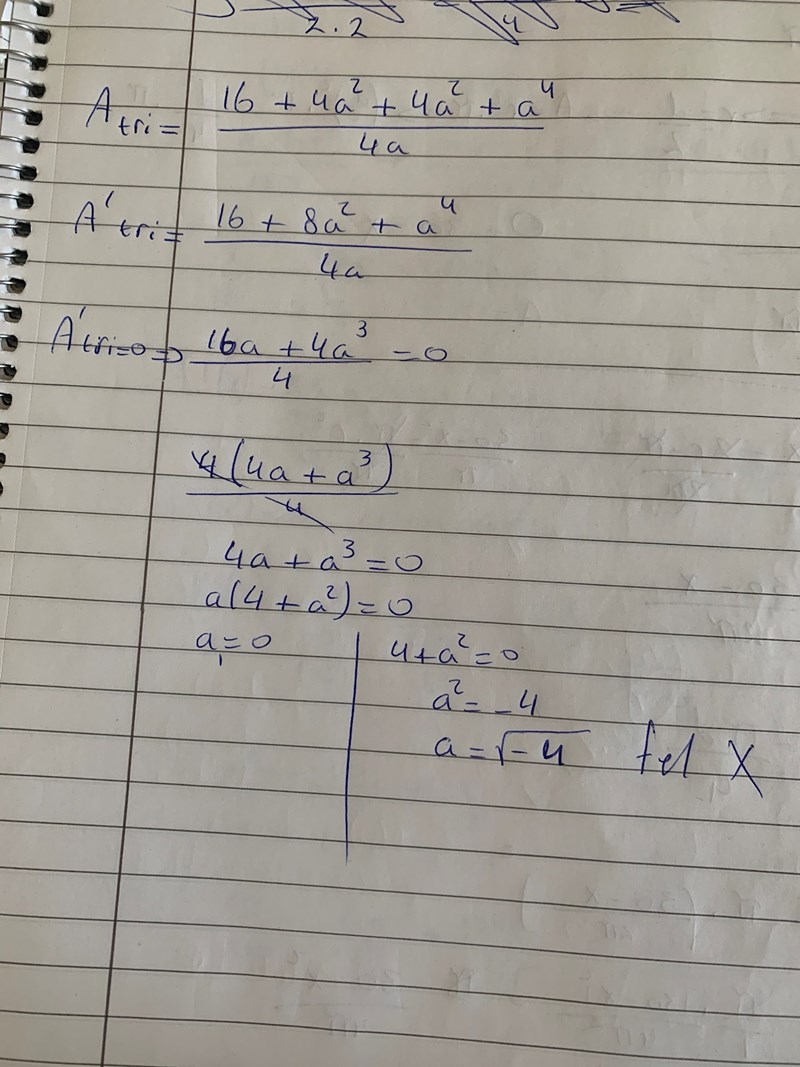 2.2 4
A tri = (16 + 4a² + 4a² + a⁴) / 4a
A' tri = (16 + 8a² + a⁴) / 4a
A' tri=0 ⇒ (16a + 4a³) / 4 = 0
4(4a + a³) / 4
4a + a³ = 0
a(4 + a²) = 0
a₁ = 0
4 + a² = 0
a² = -4
a = √-4 fel X